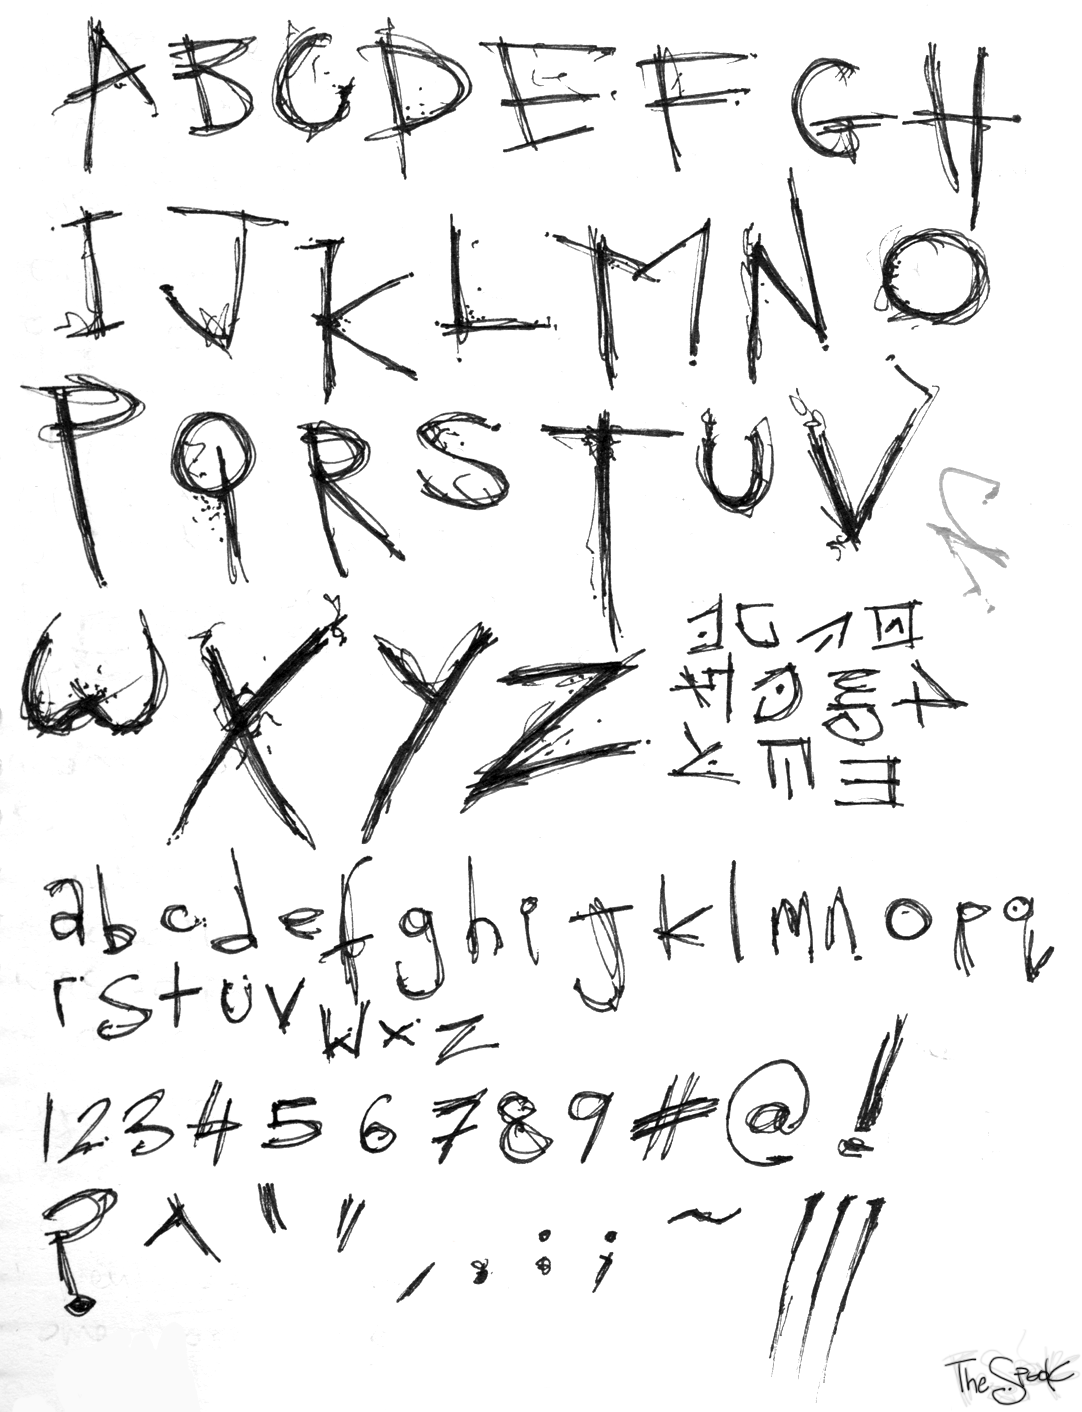 A B C D E F G H
I J K L M N O
P Q R S T U V
W X Y Z
a b c d e f g h i j k l m n o p q
r s t u v w x z
1 2 3 4 5 6 7 8 9 # @ !
? ^ " " , . : ; ~ / / /
The Spook